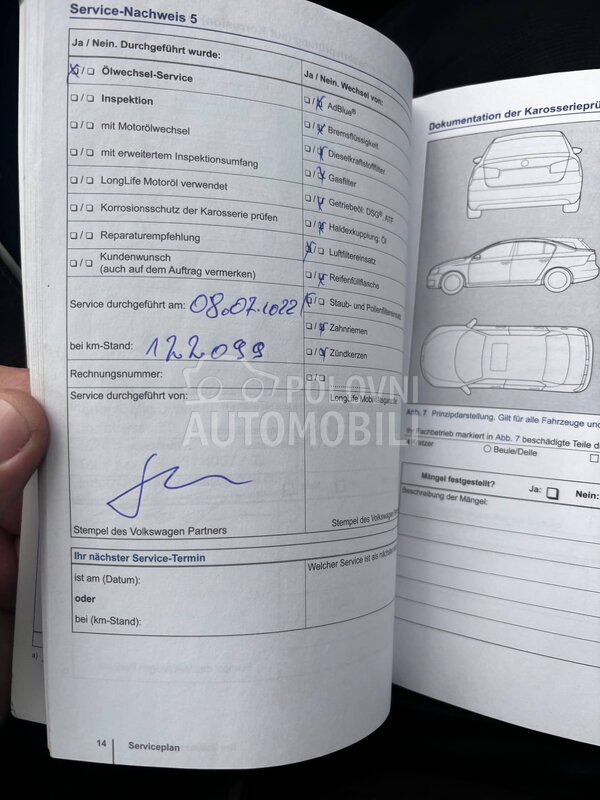 Service-Nachweis 5
Ja / Nein. Durchgeführt wurde:
☒/☐ Ölwechsel-Service
☐/☐ Inspektion
☐/☐ mit Motorölwechsel
☐/☐ mit erweitertem Inspektionsumfang
☐/☐ LongLife Motoröl verwendet
☐/☐ Korrosionsschutz der Karosserie prüfen
☐/☐ Reparaturempfehlung
☐/☐ Kundenwunsch
(auch auf dem Auftrag vermerken)
Service durchgeführt am: 08.07.2022
bei km-Stand: 122099
Rechnungsnummer:
Service durchgeführt von:
Stempel des Volkswagen Partners
Ja / Nein. Wechsel von:
☐/☒ AdBlue®
☐/☒ Bremsflüssigkeit
☐/☒ Dieselkraftstofffilter
☐/☒ Gasfilter
☐/☒ Getriebeöl: DSG®, ATF
☐/☒ Haldexkupplung: Öl
☒/☐ Luftfiltereinsatz
☐/☒ Reifenfüllflasche
☒/☐ Staub- und Pollenfiltereinsatz
☐/☒ Zahnriemen
☐/☒ Zündkerzen
☐/☐
LongLife Mobilitätsgarantie
Stempel des Volkswagen
Ihr nächster Service-Termin
ist am (Datum):
oder
bei (km-Stand):
Welcher Service ist als nächstes
a)
14 Serviceplan
Dokumentation der Karosserieprü
Abb. 7 Prinzipdarstellung. Gilt für alle Fahrzeuge und
Ihr Fachbetrieb markiert in Abb. 7 beschädigte Teile d
Kratzer ○ Beule/Delle ☐
Mängel festgestellt? Ja: ☐ Nein:
Beschreibung der Mängel:
POLOVNI
AUTOMOBILI